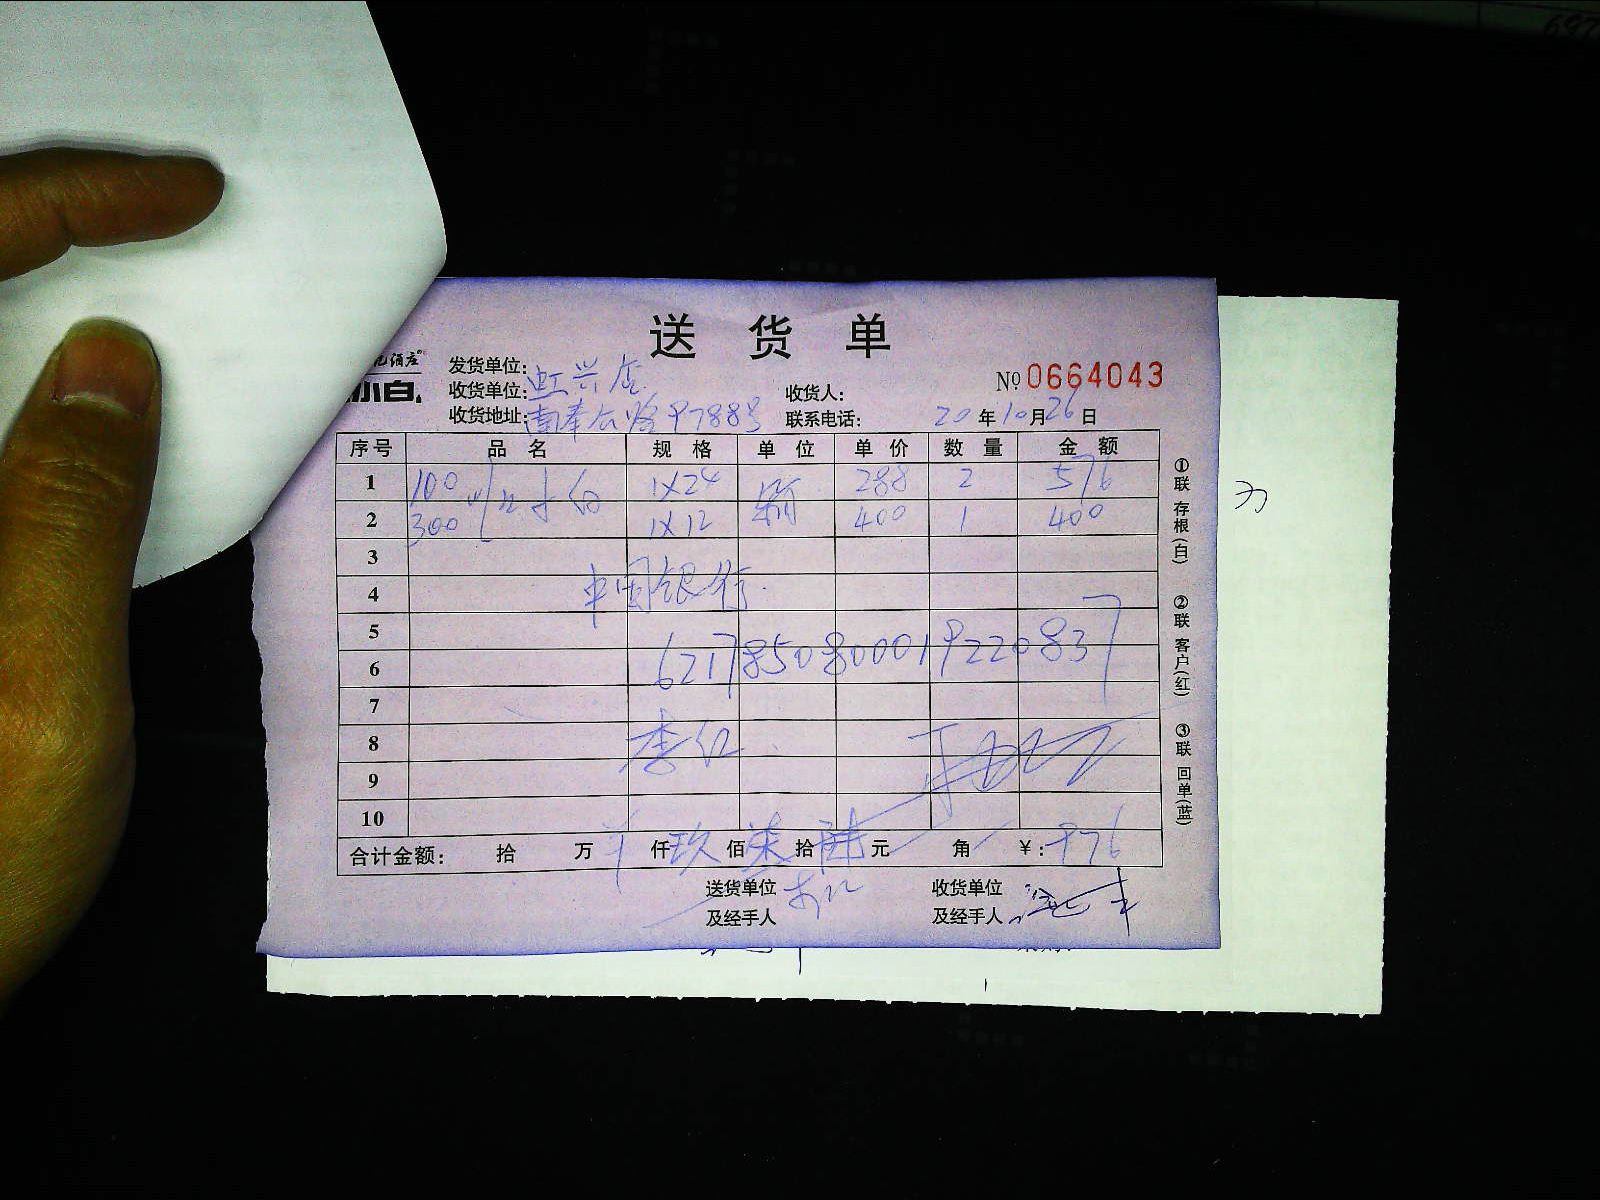 送 货 单
酒庄®
小白.
发货单位:
收货单位: 虹兴店
收货人:
№ 0664043
收货地址: 南奉公路9788号
联系电话:
20 年 10 月 26 日
序号 品 名 规 格 单 位 单 价 数 量 金 额
1 100 1×24 箱 288 2 576
2 300 1×12 400 1 400
3
4 中国银行
5
6 6217850800019220837
7
8 李红
9
10
合计金额: 拾 万 仟 玖 佰 柒 拾 陆 元 角 ¥: 976
送货单位
及经手人
收货单位
及经手人
①联 存根(白)
②联 客户(红)
③联 回单(蓝)